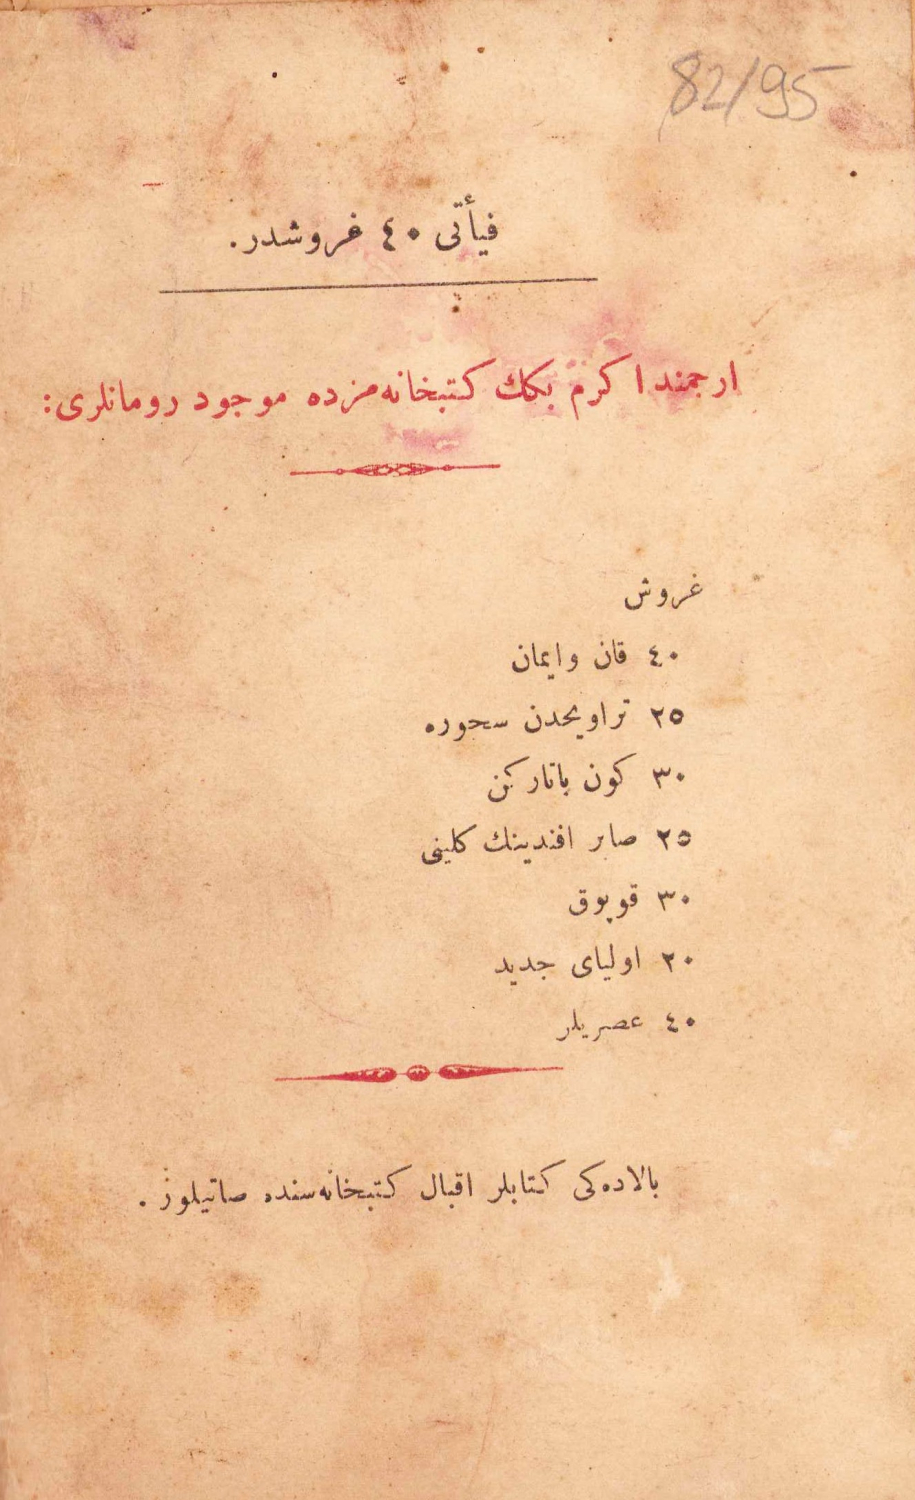 82/95
فیأتی ٤٠ غروشدر.
ارجمند اکرم بكك کتبخانه‌مزده موجود رومانلری:
غروش
٤٠ قان وایمان
٢٥ تراویحدن سحوره
٣٠ کون باتارکن
٢٥ صابر افندینك کلینی
٣٠ قوپوق
٢٠ اولیای جدید
٤٠ عصریلر
بالاده‌کی کتابلر اقبال کتبخانه‌سنده صاتیلور.